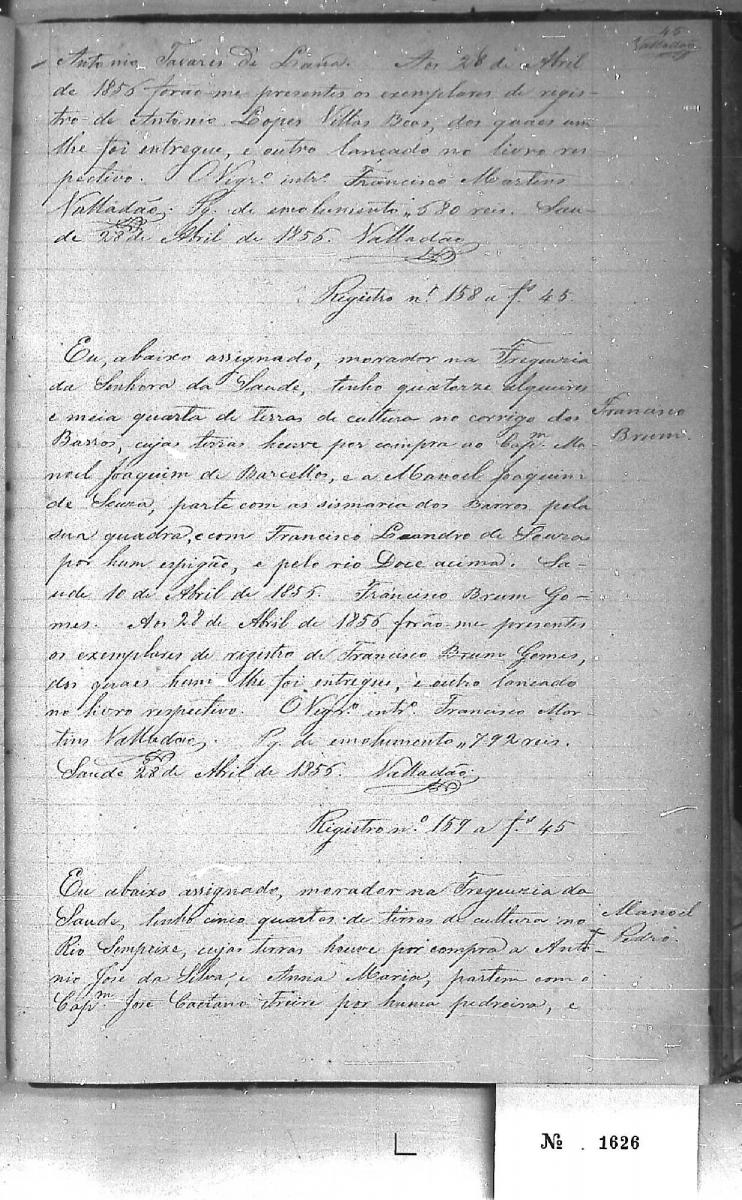 45
Valladão
Antonio Tavares de Liaña. Aos 28 de Abril
de 1856 forão-me presentes os exemplares de regis-
tro de Antonio Lopes Villas Boas, dos quaes um
lhe foi entregue, e outro lançado no livro res
pectivo. O Vigr.º intr.º Francisco Martins
Valladão. Pg. de emolumento "680 reis. Sau-
de 28 de Abril de 1856. Valladão
Registro nº 158 a fs 45
Eu, abaixo assignado, morador na Freguezia
da Senhora da Saude, tenho quatorze alqueires
e meia quarta de terras de cultura no corrigo dos
Barros, cujas terras houve por compra ao Capm. Ma-
noel Joaquim de Barcellos, e a Manoel Joaquim
de Souza, parte com as sismaria dos Barros pela
sua quadra, e com Francisco Leandro de Souza
por hum espigão, e pelo rio Doce acima. Sa-
ude 10 de Abril de 1856. Francisco Brum Go-
mes. Aos 28 de Abril de 1856 forão-me presentes
os exemplares de registro de Francisco Brum Gomes,
dos quaes hum lhe foi entregue, e outro lancado
no livro respectivo. O Vigr.º intr.º Francisco Mar-
tins Valladão. Pg. de emolumento "792 reis.
Saude 28 de Abril de 1856. Valladão
Francisco
Brum.
Registro n.º 159 a fs 45
Eu abaixo assignado, morador na Freguezia da
Saude, tenho cinco quartas de terras de cultura no
Rio Sempeixe, cujas terras houve por compra a Anto-
nio José da Silva, e Anna Maria, partem com o
Capm. José Caetano Freire por huma pedreira, e
Manoel
Pedro.
№ 1626